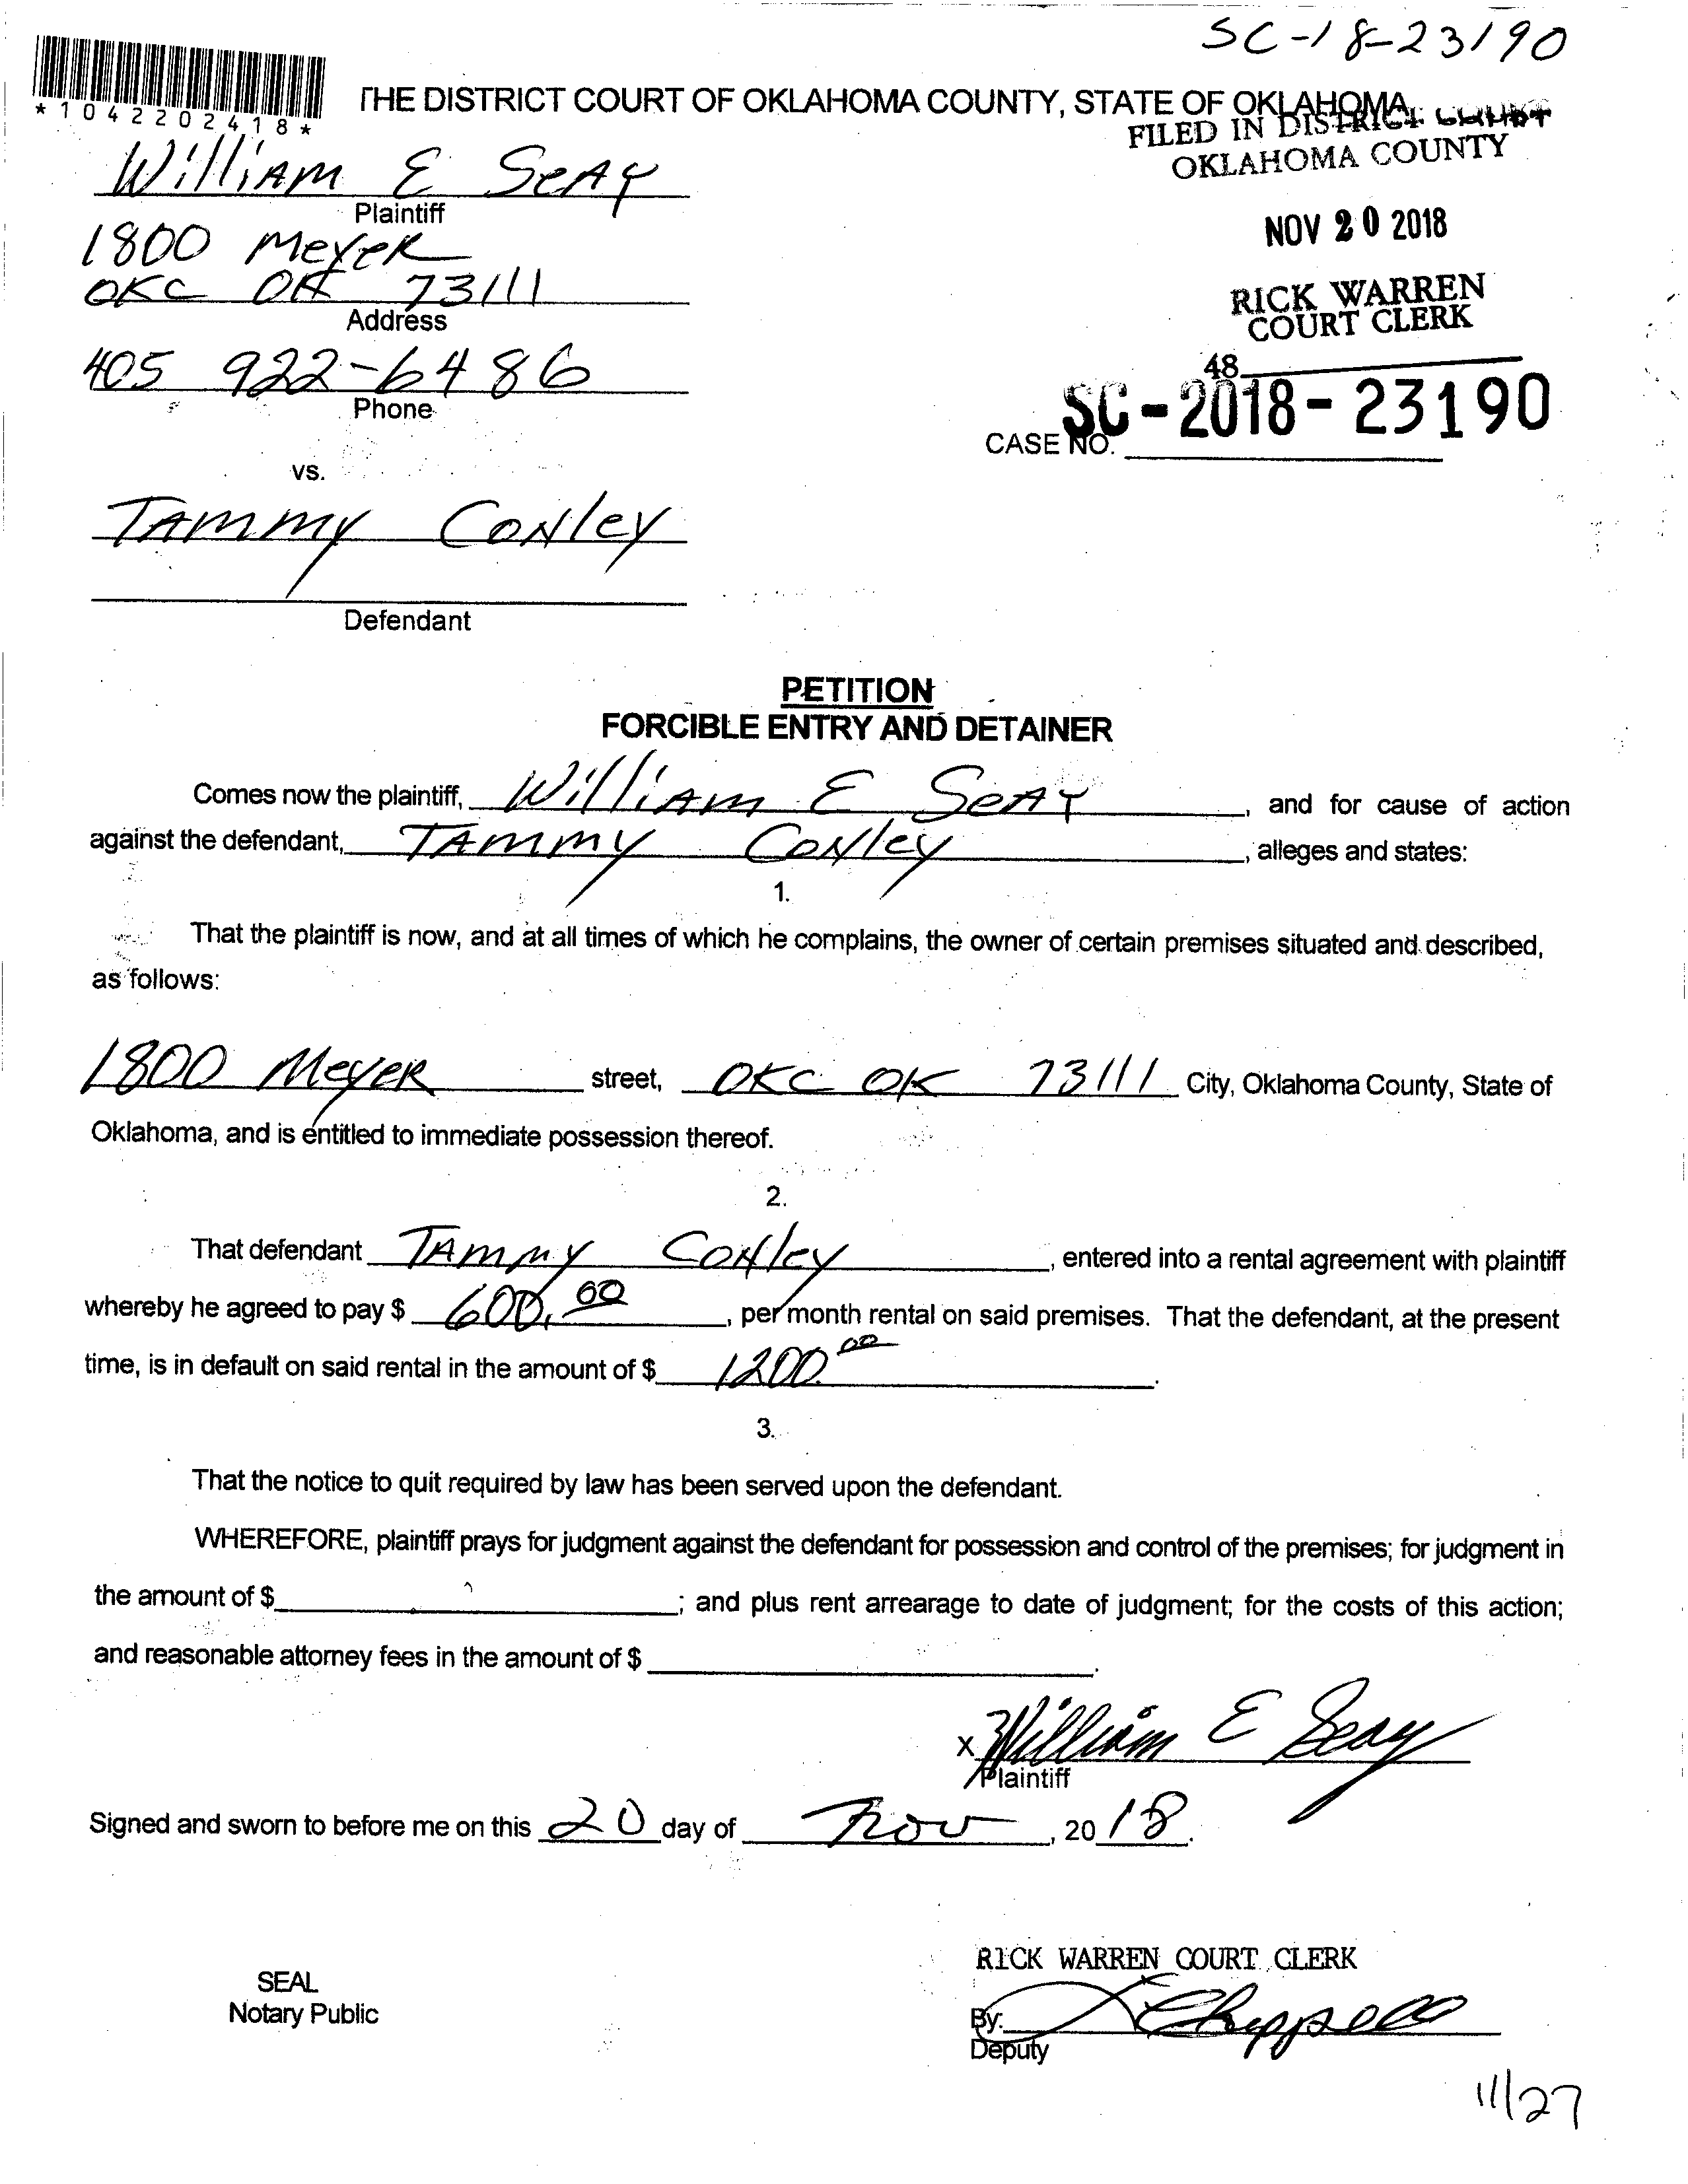 SC-18-23190
*1042202418*
THE DISTRICT COURT OF OKLAHOMA COUNTY, STATE OF OKLAHOMA
FILED IN DISTRICT COURT
OKLAHOMA COUNTY
William E Seay
Plaintiff
NOV 20 2018
1800 Meyer
OKC OK 73111
Address
RICK WARREN
COURT CLERK
405 922-6486
Phone
48
CASE NO. SC-2018-23190
vs.
Tammy Conley
Defendant
PETITION
FORCIBLE ENTRY AND DETAINER
Comes now the plaintiff, William E Seay, and for cause of action
against the defendant, Tammy Conley, alleges and states:
1.
That the plaintiff is now, and at all times of which he complains, the owner of certain premises situated and described,
as follows:
1800 Meyer street, OKC OK 73111 City, Oklahoma County, State of
Oklahoma, and is entitled to immediate possession thereof.
2.
That defendant Tammy Conley, entered into a rental agreement with plaintiff
whereby he agreed to pay $ 600.00, per month rental on said premises. That the defendant, at the present
time, is in default on said rental in the amount of $ 1200.00.
3.
That the notice to quit required by law has been served upon the defendant.
WHEREFORE, plaintiff prays for judgment against the defendant for possession and control of the premises; for judgment in
the amount of $ ; and plus rent arrearage to date of judgment; for the costs of this action;
and reasonable attorney fees in the amount of $ .
X William E Seay
Plaintiff
Signed and sworn to before me on this 20 day of Nov, 2018.
RICK WARREN COURT CLERK
SEAL
Notary Public
By: Chappell
Deputy
11/27